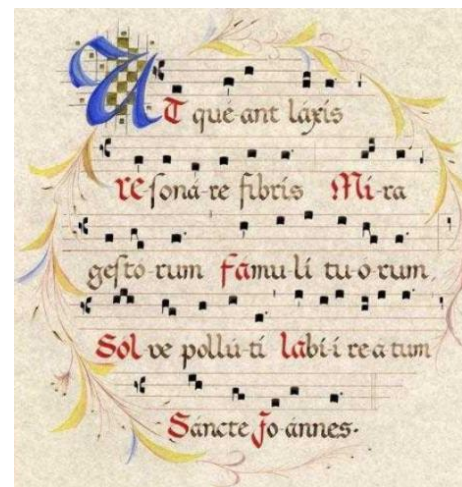 UT qué ant láxis
resoná-re fibris Mi-ra
gestó-rum famu-li tu-ó-rum,
Sol ve pollú-ti labi-i re á tum
Sáncte Jo-ánnes.